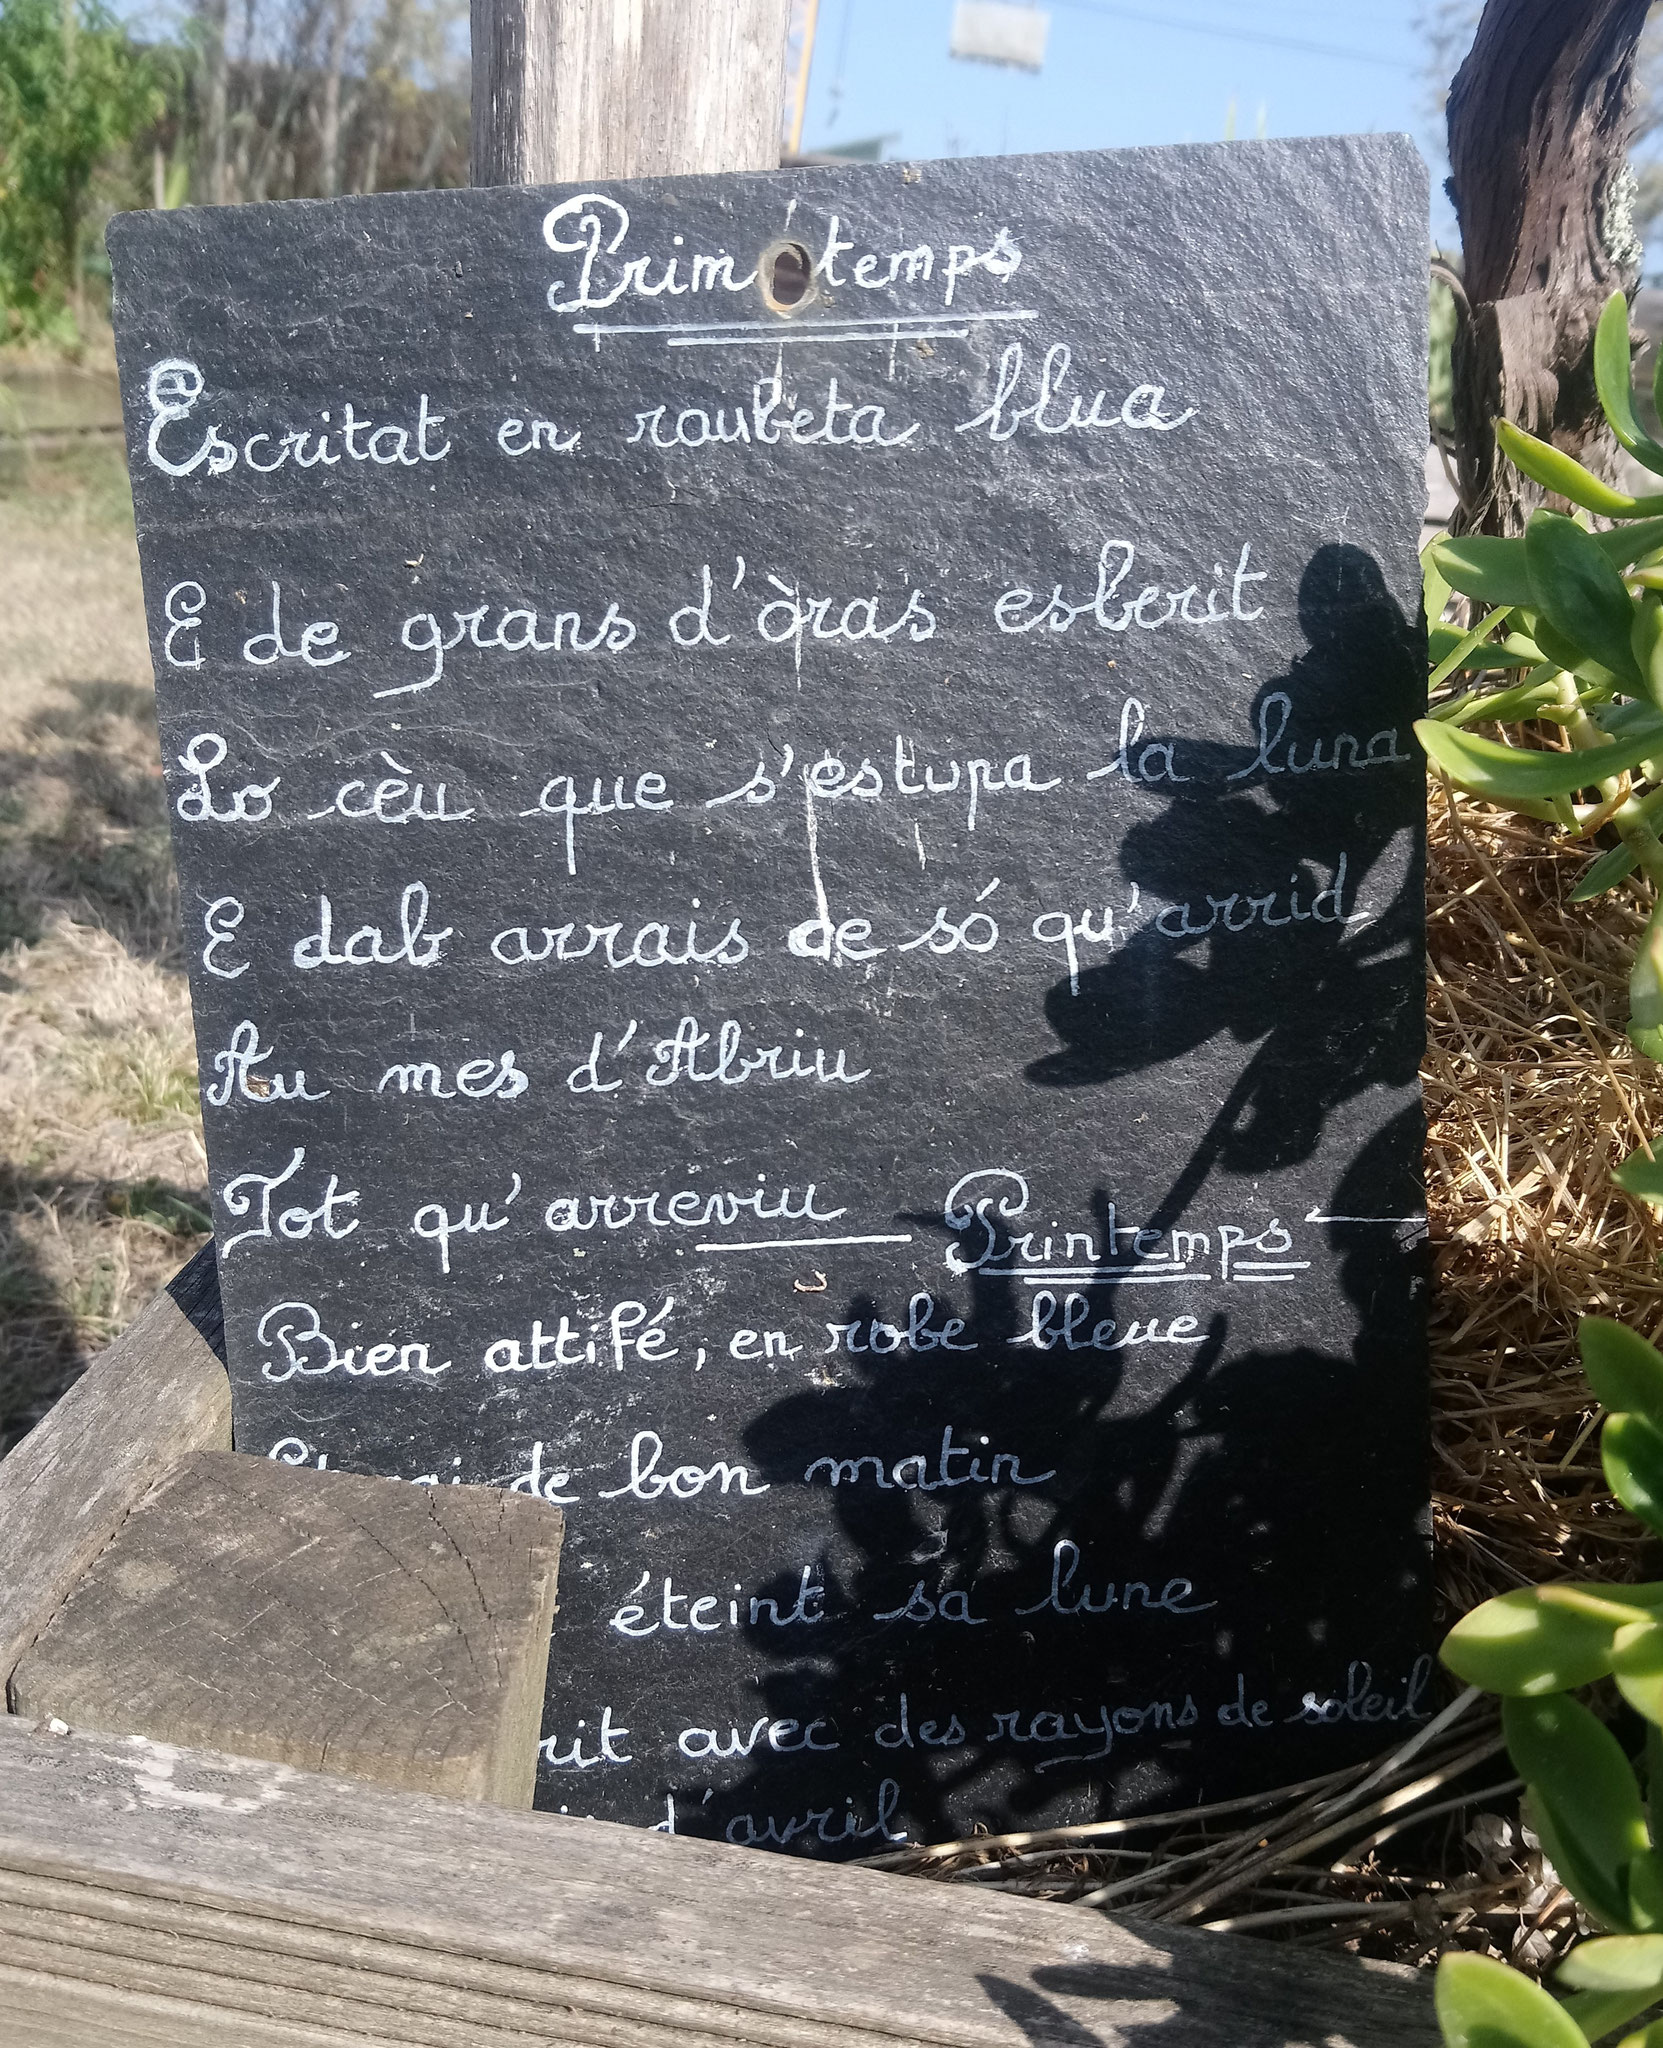 Primtemps
Escritat en raubeta blua
E de grans d'òras esberit
Lo cèu que s'estupa la luna
E dab arrais de só qu'arrid
Au mes d'Abriu
Tot qu'arreviu
Printemps
Bien attifé, en robe bleue
de bon matin
éteint sa lune
rit avec des rayons de soleil
d'avril